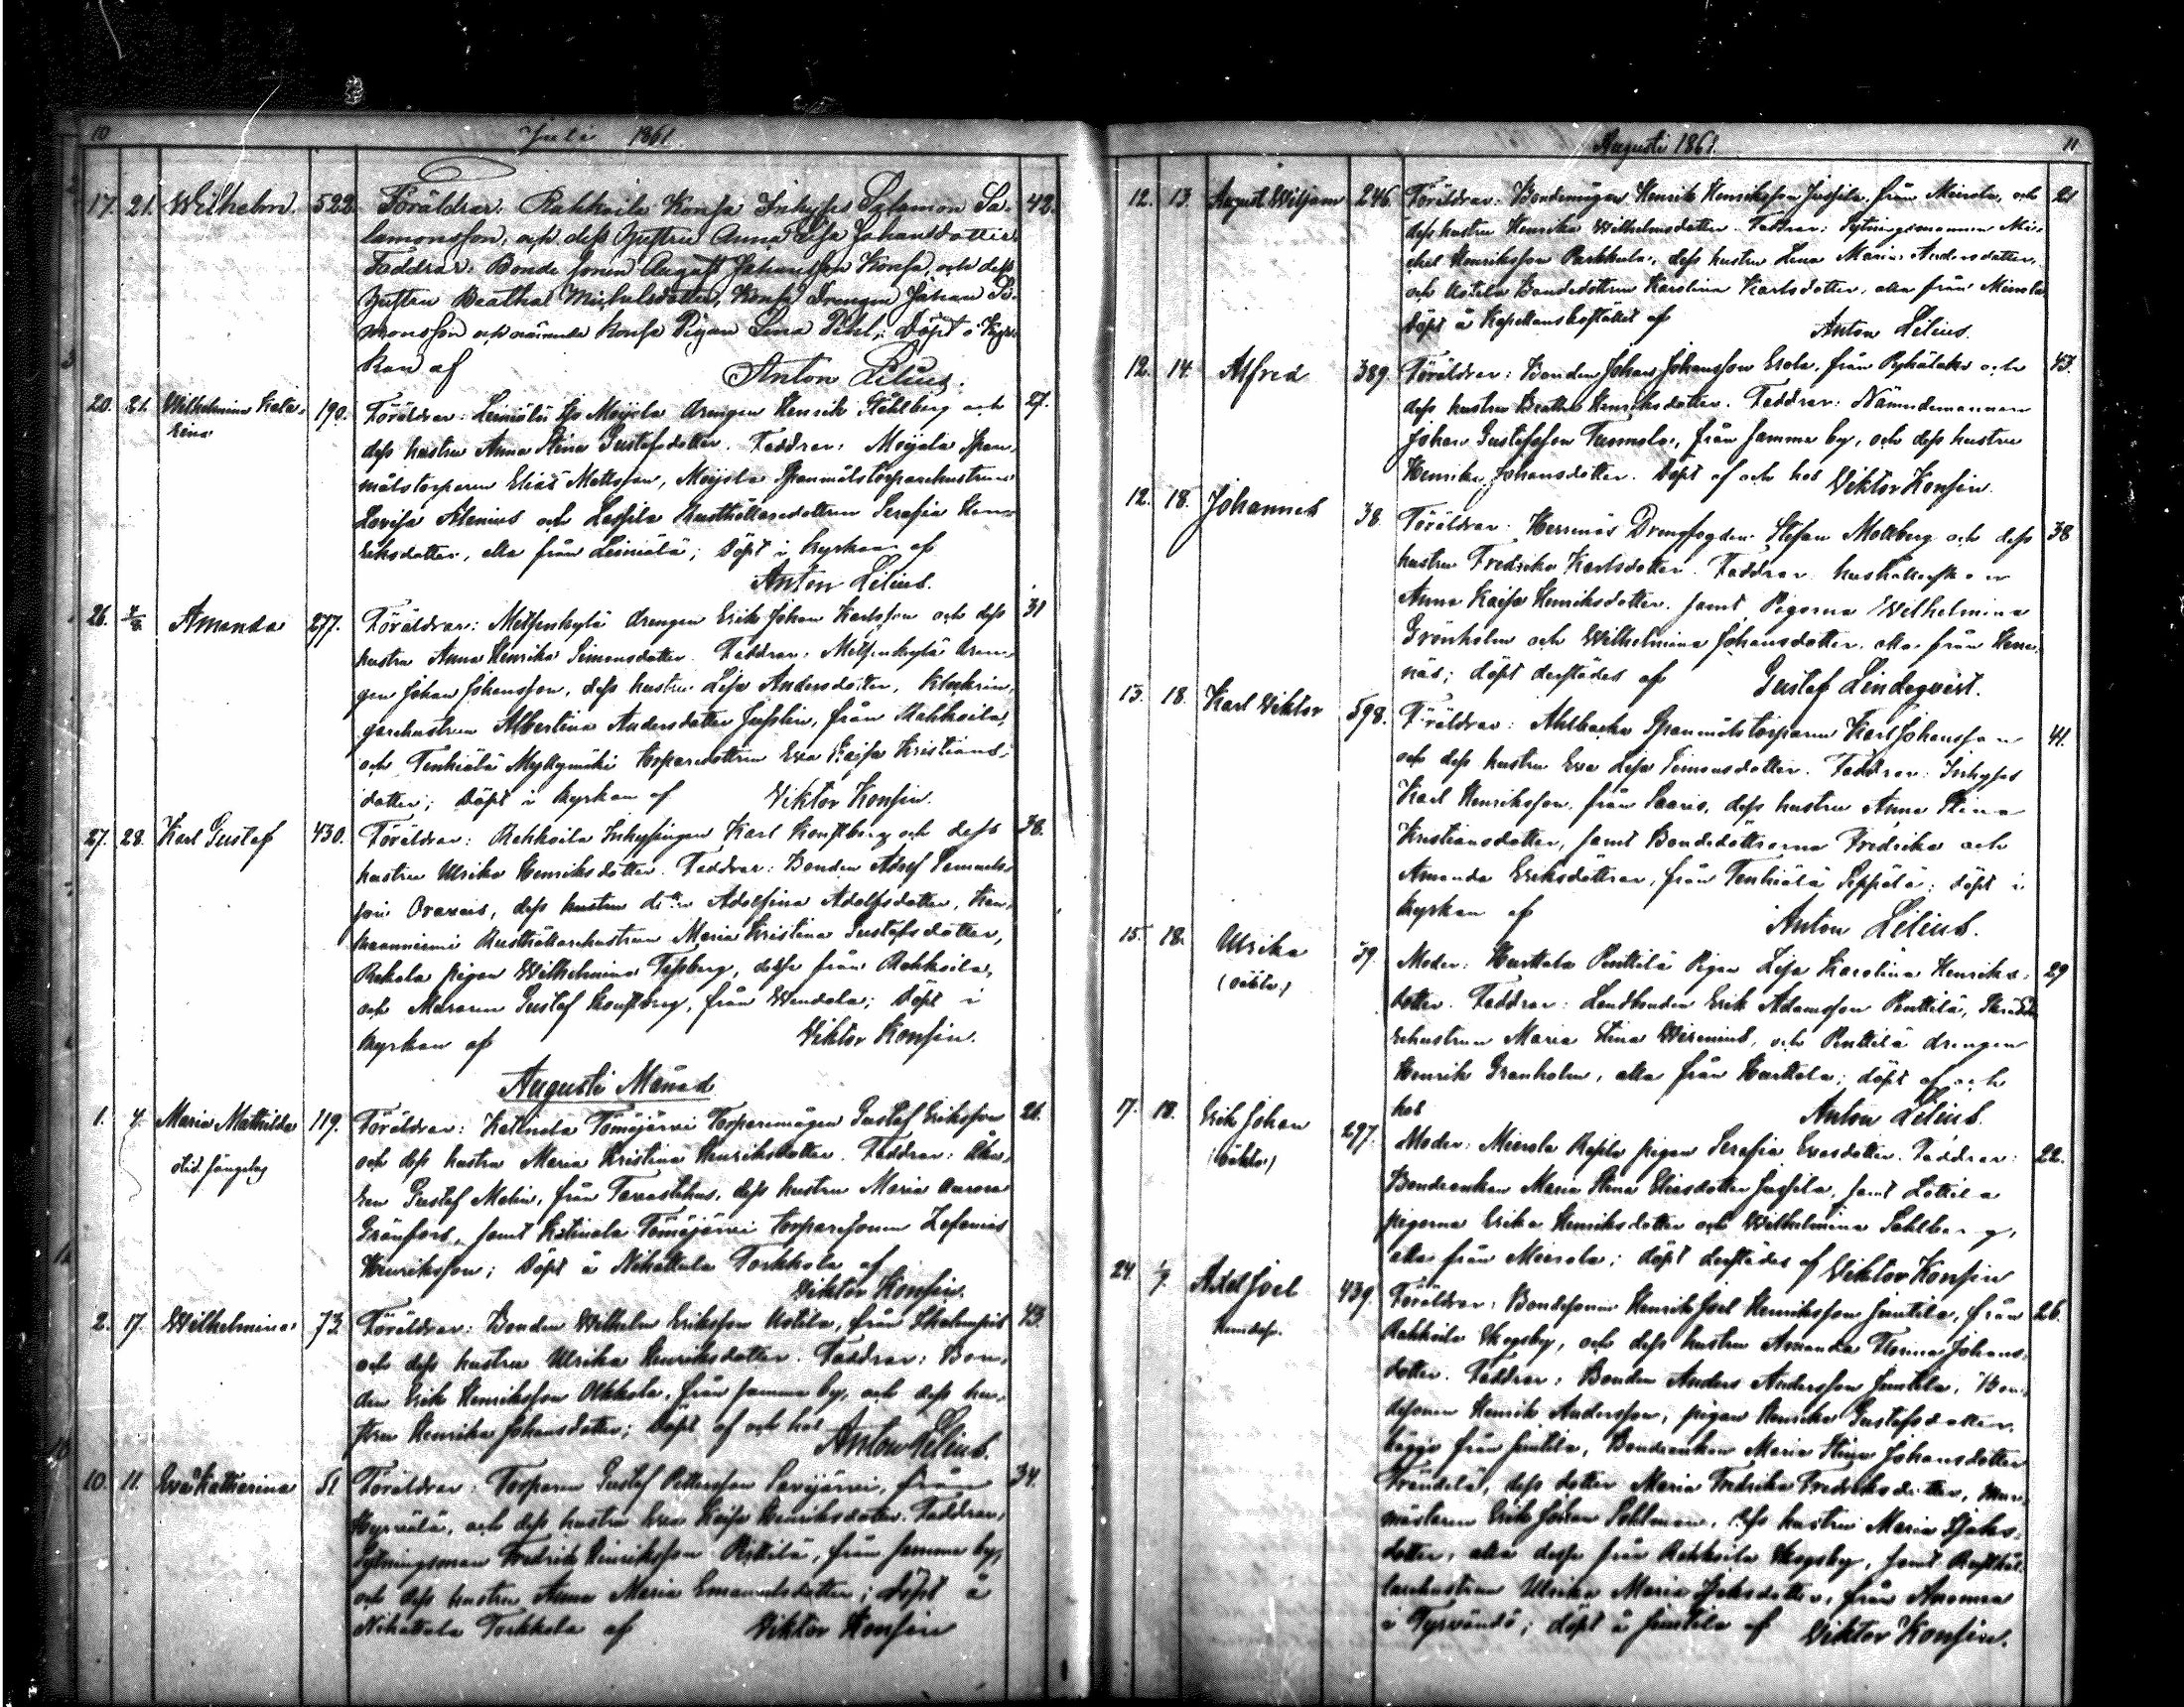 10 Juli 1861.
17. 21. Wilhelm. 522. Föräldrar: Rahkoila Konsa Inhyses Salomon Sa- 42.
lomonsson, och dess Hustru Anna Lisa Johansdotter.
Faddrar: Bonde sonen August Johansson Konsa, och dess
Hustru Beatha Michelsdotter, Konsa Drengen Johan Si-
monsson och nämnde Konsa Pigan Lena Pihl; Döpt i Kyr-
kan af Anton Lilius.
20. 21. Wilhelmina Kata- 190. Föräldrar: Leiniälä Moijsla drengen Henrik Ståhlberg och 27.
rina dess hustru Anna Stina Gustafsdotter. Faddrar: Moijsla Span-
målstorparen Elias Mattsson, Moijsla Spanmålstorparehustrun
Lovisa Alenius och Lassila Rusthållaredottren Serafia Hen-
riksdotter, alla från Leiniälä; Döpt i kyrkan af
Anton Lilius.
26. 4/8. Amanda 277. Föräldrar: Metsenkylä drengen Erik Johan Karlsson och dess 31
hustru Anna Henrika Simonsdotter. Faddrar: Metsenkylä dren-
gen Johan Johansson, dess hustru Lisa Andersdotter, Klockrin-
garehustrun Albertina Andersdotter Jusslin, från Rahkoila,
och Tenhiälä Myllymäki torparedottren Eva Kaisa Kristians-
dotter; Döpt i kyrkan af Viktor Konsin.
27. 28. Karl Gustaf 430. Föräldrar: Rahkoila Inhysingen Karl Konstberg och dess 38.
hustru Ulrika Henriksdotter. Faddrar: Bonden Adolf Samuels-
son Oravais, dess hustru Adolfina Adolfsdotter,
Rusthållarehustrun Maria Kristina Gustafsdotter,
Rekola pigan Wilhelmina Forsberg, dessa från Rahkoila,
och Muraren Gustaf Konstberg, från Wendola; Döpt i
kyrkan af Viktor Konsin.
Augusti Månad
1. 4. Maria Mathilda 119. Föräldrar: Katinala Tömäjärvi Torparemågen Gustaf Eriksson 21.
och dess hustru Maria Kristina Henriksdotter. Faddrar:
Gustaf Malin, från Tavastehus, dess hustru Maria Aurora
Gränfors, samt Katinala Tömäjärvi torparesonen Zefanias
Henriksson; Döpt å Nihattula Torkkola af
Viktor Konsin.
2. 17. Wilhelmina 73. Föräldrar: Bonden Wilhelm Eriksson Uotila, från Ihalempis 43.
och dess hustru Ulrika Henriksdotter. Faddrar: Bon-
den Erik Henriksson Ollkola, från samma by, och dess hu-
stru Henrika Johansdotter; Döpt af och hos Anton Lilius.
10. 11. Eva Katharina 51 Föräldrar: Torparen Gustaf Pettersson Savijärvi, från 34.
Hyrvälä, och dess hustru Eva Kaisa Henriksdotter. Faddrar:
Sytningsman Fredrik Henriksson Pittilä, från samma by,
och dess hustru Anna Maria Emanuelsdotter; döpt å
Nihattula Torkkola af Viktor Konsin
Augusti 1861. 11
12. 13. August Wiljam 246. Föräldrar: Bondemågen Henrik Henriksson Jussila, från Mierola, och 21
dess hustru Henrika Wilhelmsdotter. Faddrar: Sytningsmannen Mi-
chel Henriksson Parkkula, dess hustru Lena Maria Andersdotter,
och Uotila Bondedottren Karolina Karlsdotter, alla från Mierola
Döpt å Kapellansbostället af Anton Lilius.
12. 14. Alfred 389. Föräldrar: Bonden Johan Johansson Erola, från Pyhälaks och 43.
dess hustru Beatha Henriksdotter. Faddrar: Nämndemannen
Johan Gustafsson Tuomola, från samma by, och dess hustru
Henrika Johansdotter. Döpt af och hos Viktor Konsin.
12. 18. Johannes 38. Föräldrar: Herrnäs Drengfogden Stefan Mollberg och dess 38
hustru Fredrika Karlsdotter. Faddrar: hushållerskan
Anna Kaisa Henriksdotter. samt Pigorna Wilhelmina
Grönholm och Wilhelmina Johansdotter, alla från Herr-
näs; döpt derstädes af Gustaf Lindeqvist.
13. 18. Karl Viktor 598. Föräldrar: Ahlbacka Spanmålstorparen Karl Johansson 41.
och dess hustru Eva Lisa Simonsdotter. Faddrar: Inhyses
Karl Henriksson, från Saaris, dess hustru Anna Stina
Kristiansdotter, samt Bondedöttrarna Fredrika och
Amanda Eriksdöttrar, från Tenhiälä Seppälä; döpt i
kyrkan af Anton Lilius.
15. 18. Ulrika 39. Moder: Hurttala Penttilä Pigan Lisa Karolina Henriks- 29
(oäkta) dotter. Faddrar: Landbonden Erik Adamsson Penttilä, Skrädda-
rehustrun Maria Stina Wirenius, och Penttilä drengen
Henrik Granholm, alla från Hurttala; döpt af och
hos Anton Lilius.
17. 18. Erik Johan 297. Moder: Mierola Rapila pigan Serafia Evasdotter. Faddrar: 22.
(oäkta) Bondeenkan Maria Stina Eliasdotter Jussila, samt Lottila
pigorna Erika Henriksdotter och Wilhelmina Sahlberg,
alla från Mierola; döpt derstädes af Viktor Konsin
24. 1/9 Axel Joel 439. Föräldrar: Bondesonen Henrik Joel Henriksson Junttila, från 26.
Rahkoila Skogsby, och dess hustru Amanda Johans-
dotter. Faddrar: Bonden Anders Andersson Junttila, Bon-
desonen Henrik Andersson, pigan Henrika Gustafsdotter,
bägge från Junttila, Bondeenkan Maria Stina Johansdotter
Frändilä, dess dotter Maria Fredrika Fredriksdotter, Mur-
mästaren Erik Johan Sehlman, dess hustru Maria Isaks-
dotter, alla dessa från Rahkoila Skogsby, samt Rusthål-
larehustrun Ulrika Maria Isaksdotter, från
i Tyrväntö; döpt å Junttila af Viktor Konsin.